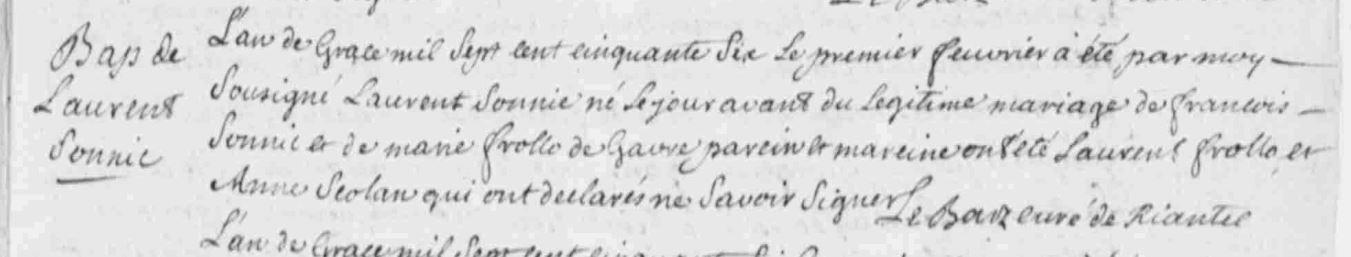 Bap de
Laurent
Sonnic
L'an de Grace mil Sept cent cinquante Six Le premier feuvrier à été par moy
Sousigné Laurent Sonnic né le jour avant du Legitime mariage de francois
Sonnic et de marie frollo de Gavre parein et mareine ont été Laurent frollo et
Anne Scolan qui ont declarés ne Savoir Signer
Le Barz curé de Riantec
L'an de Grace mil Sept cent